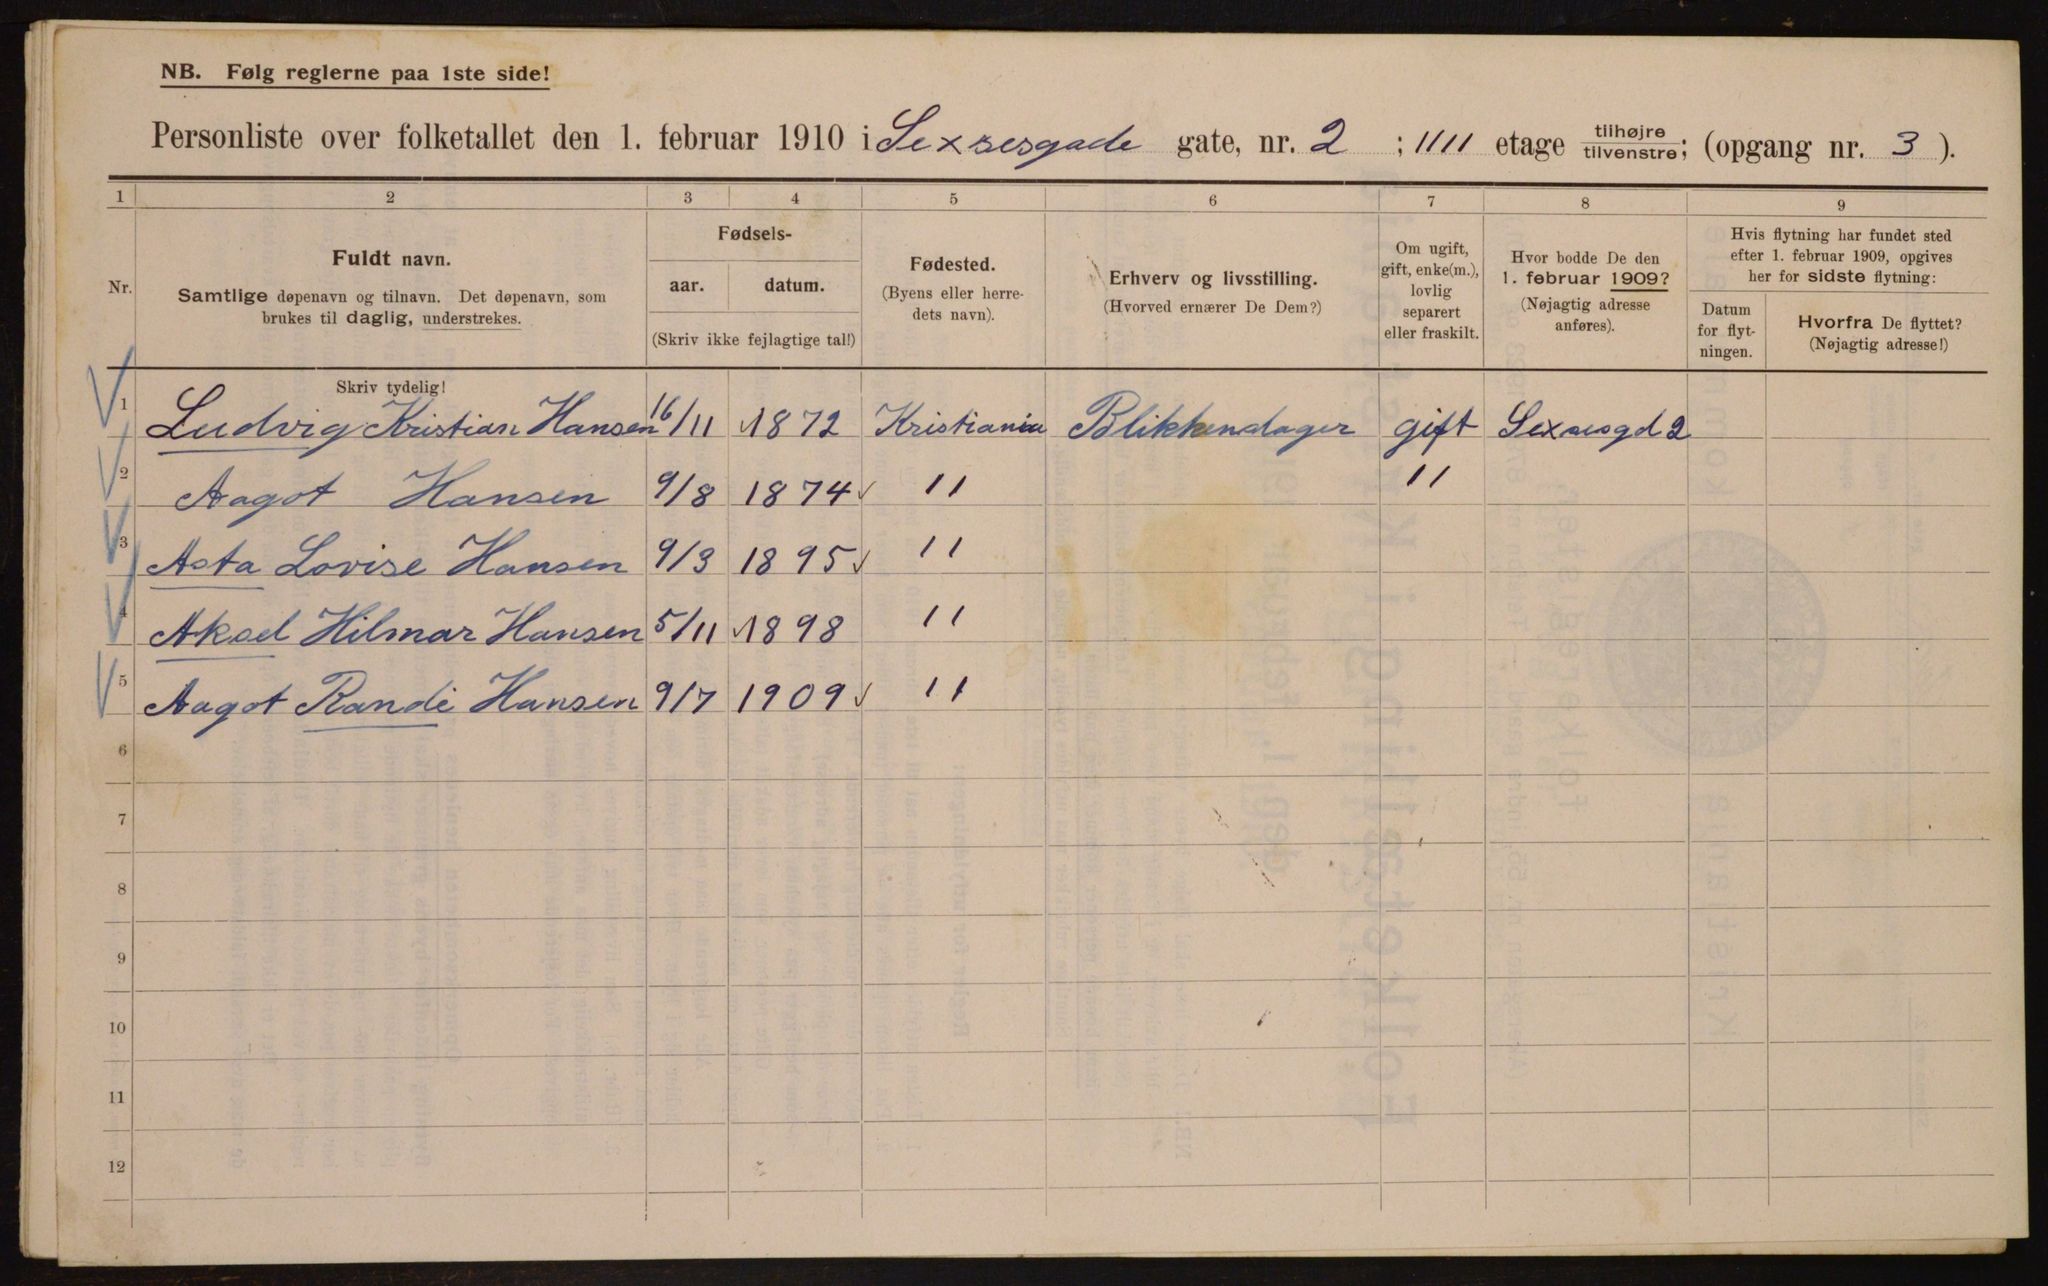 NB. Følg reglerne paa 1ste side!
Personliste over folketallet den 1. februar 1910 i Sexsesgade gate, nr. 2 ; 1111 etage tilhøjre/tilvenstre; (opgang nr. 3 ).
1 2 3 4 5 6 7 8 9
Nr.
Fuldt navn.
Samtlige døpenavn og tilnavn. Det døpenavn, som
brukes til daglig, understrekes.
Skriv tydelig!
Fødsels-
aar. datum.
(Skriv ikke fejlagtige tal!)
Fødested.
(Byens eller herre-
dets navn).
Erhverv og livsstilling.
(Hvorved ernærer De Dem?)
Om ugift,
gift, enke(m.),
lovlig
separert
eller fraskilt.
Hvor bodde De den
1. februar 1909?
(Nøjagtig adresse
anføres).
Hvis flytning har fundet sted
efter 1. februar 1909, opgives
her for sidste flytning:
Datum
for flyt-
ningen.
Hvorfra De flyttet?
(Nøjagtig adresse!)
1 Ludvig Kristian Hansen 16/11 1872 Kristiania Blikkenslager gift Sexsesgd 2
2 Aagot Hansen 9/8 1874 11 11
3 Asta Lovise Hansen 9/3 1895 11
4 Aksel Hilmar Hansen 5/11 1898 11
5 Aagot Randi Hansen 9/7 1909 11
6
7
8
9
10
11
12